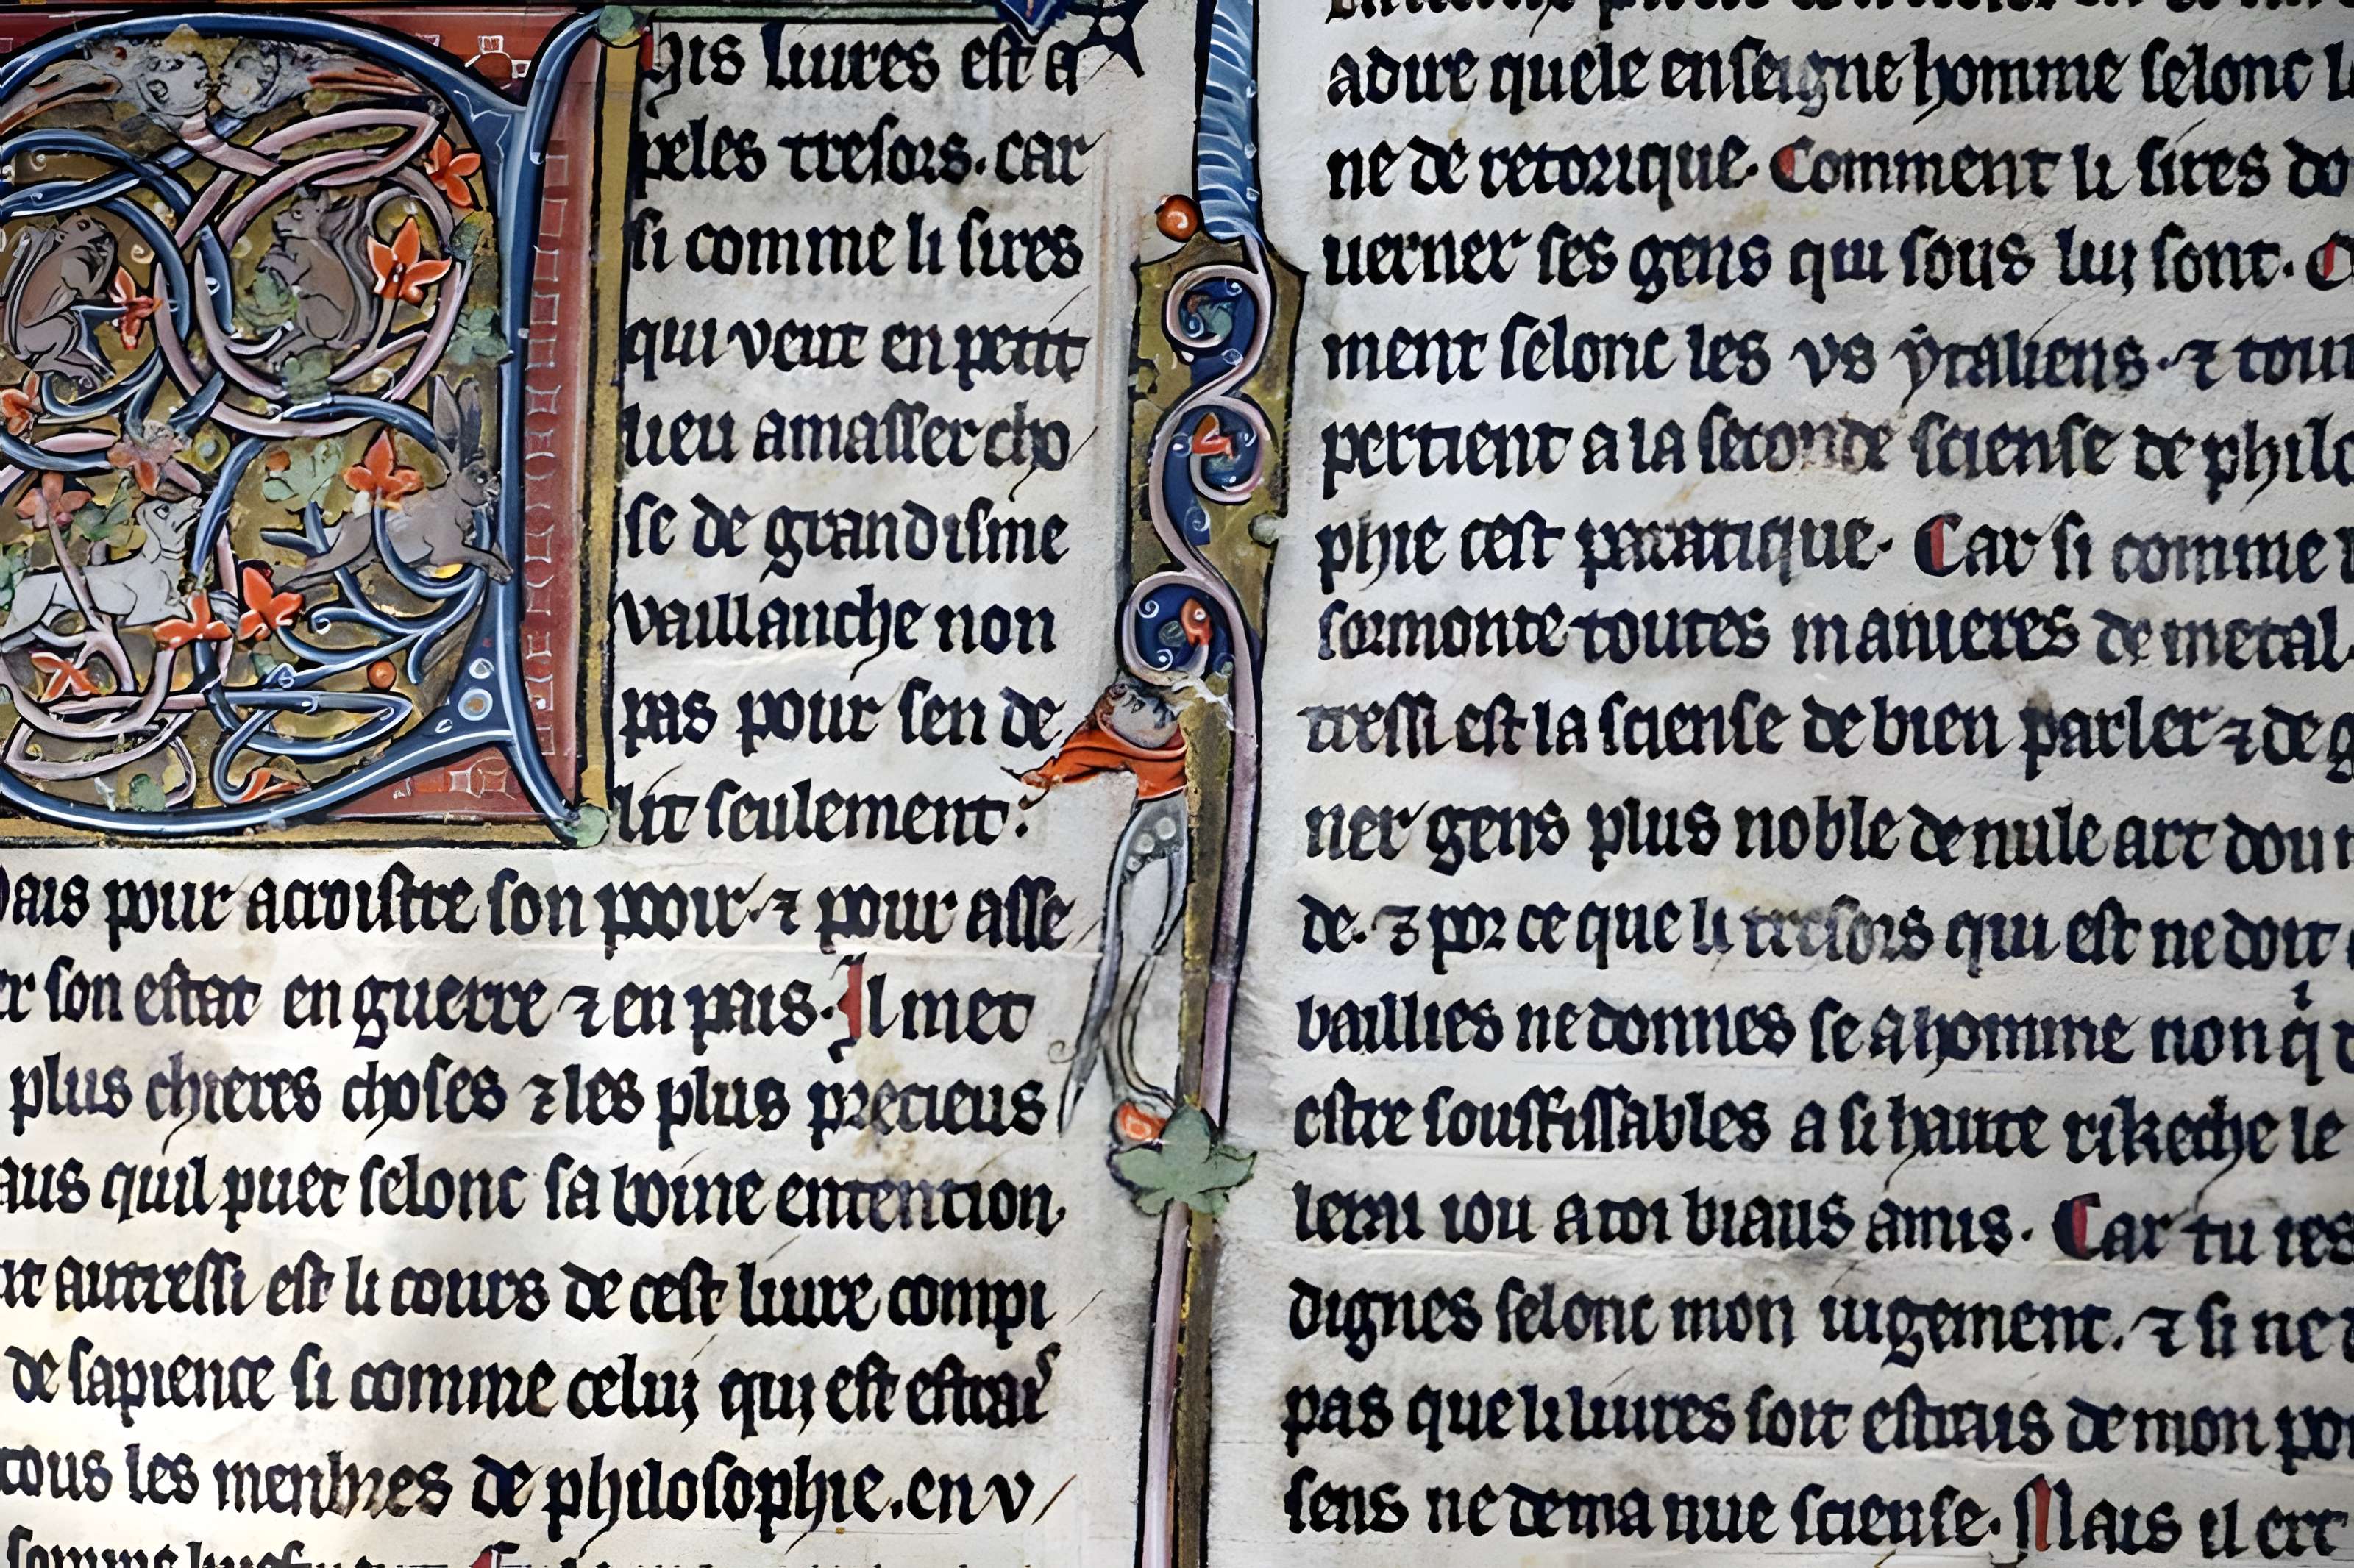 his liures est a
peles tresors. car
si comme li sires
qui veut en petit
lieu amasser cho
se de grandisme
vaillanche non
pas pour sen de
lit seulement.
ais pour acroistre son pooir. ⁊ pour asse
er son estat en guerre ⁊ en pais. Il met
plus chieres choses ⁊ les plus precieus
aus quil puet selonc sa boine entention.
autressi est li cours de cest liure compi
de sapience si comme celuj quj est estrai
tous les menbres de philosophie. en v
adire quele enseigne homme selonc
ne de retorique. Comment li sires do
uerner ses gens qui sous luj sont.
ment selonc les vs ytaliens. ⁊ tout
pertient a la seconde sciense de philo
phie cest pratique. Car si comme
sormonte toutes manieres de metal.
tressi est la sciense de bien parler ⁊ de g
ner gens plus noble de nule art dou
de. ⁊ por ce que li tresors qui est ne doit
baillies ne donnes se a homme non q̍
estre souffissables a si haute rikeche le
lerai iou a toi biaus amis. Car tu ies
dignes selonc mon iugement. ⁊ si ne
pas que li liures soit estrais de mon po
sens ne de ma nue sciense. Mais il ert